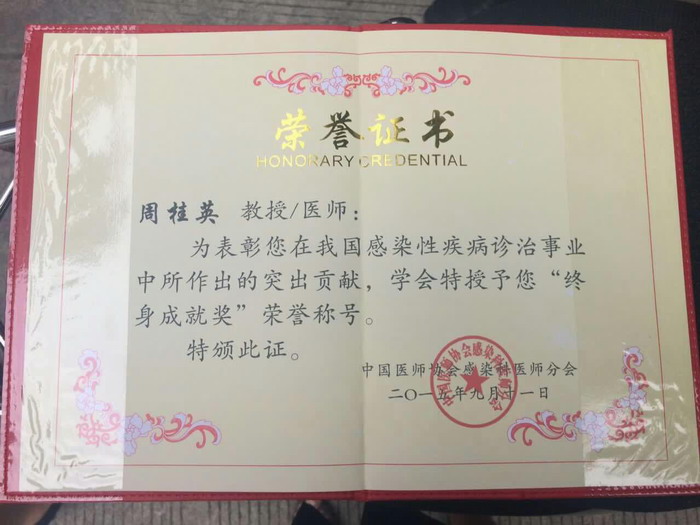 荣誉证书
HONORARY CREDENTIAL
周桂英 教授/医师：
为表彰您在我国感染性疾病诊治事业
中所作出的突出贡献，学会特授予您“终
身成就奖”荣誉称号。
特颁此证。
中国医师协会感染科医师分会
二〇一五年九月十一日